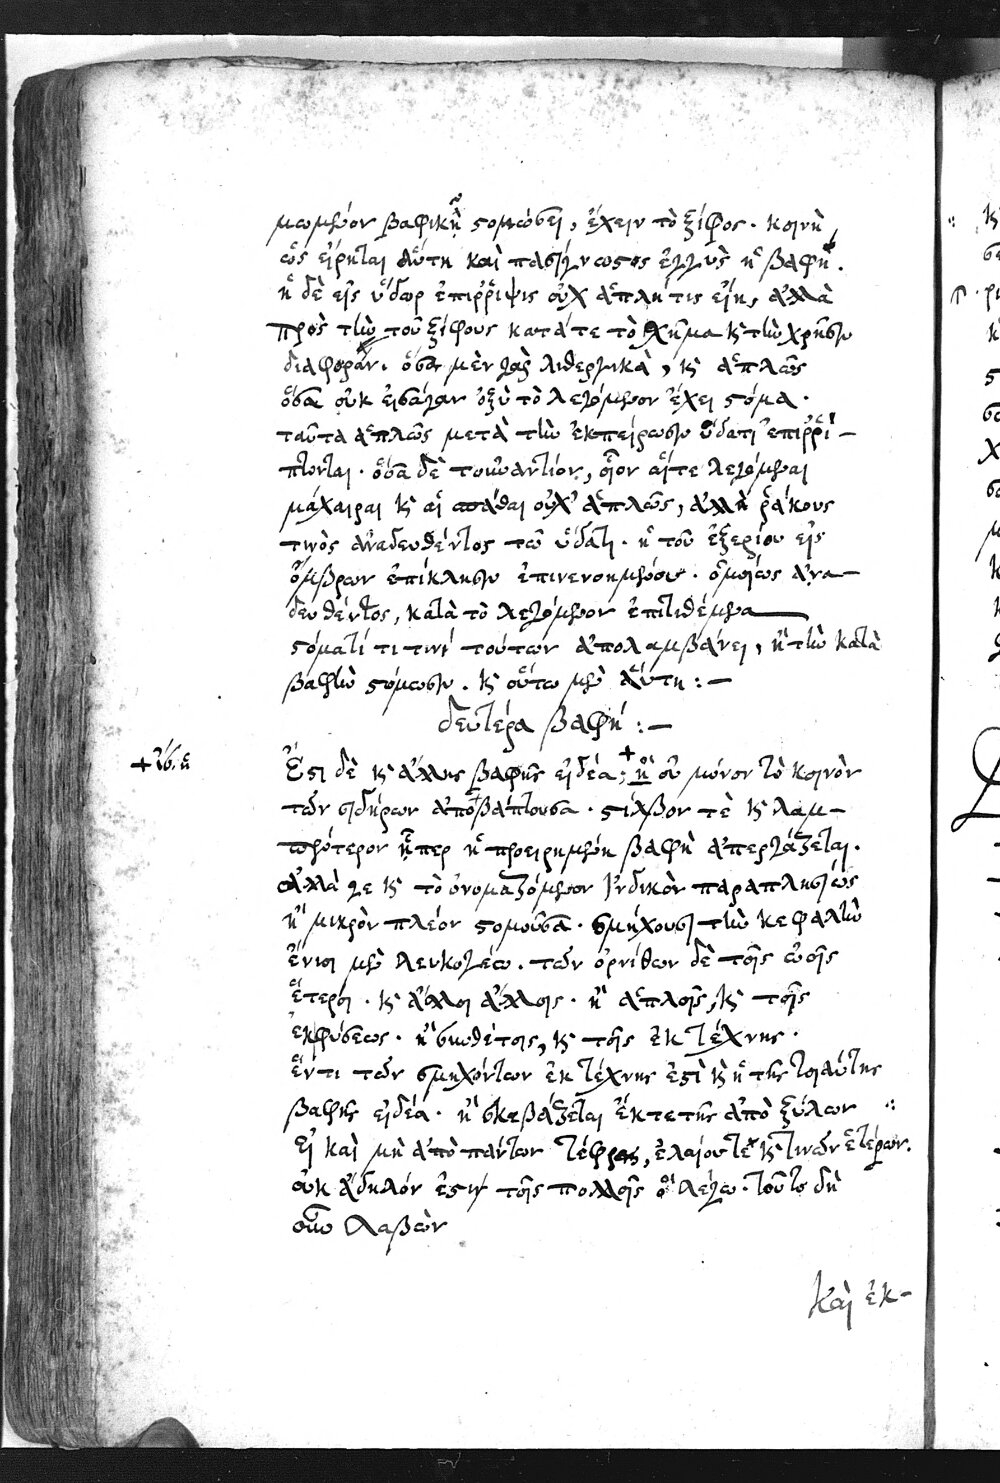 μωμένον βαφικῇ στομώσει, ἔχειν τὸ ξίφος. κοινὴ,
ὡς εἴρηται αὕτη καὶ πασίγνωστος ἐγγὺς ἡ βαφή.
ἡ δὲ εἰς ὕδωρ ἐπιρρίψις οὐχ ἁπλῆ τις εἴης ἀλλὰ
πρὸς τὴν τοῦ ξίφους κατά τε τὸ σχῆμα καὶ τὴν χρῆσιν
διαφοράν. ὅσα μὲν γὰρ λιθεργικὰ, καὶ ἁπλῶς
ὅσα οὐκ εἰσάγαν ὀξὺ τὸ λεγόμενον ἔχει στόμα.
ταῦτα ἁπλῶς μετὰ τὴν ἐκπείρωσιν ὕδατι ἐπιρρί-
πτονται. ὅσα δὲ τοὐναντίον, οἷον αἵτε λεγόμεναι
μάχαιραι καὶ αἱ σπάθαι οὐχ ἁπλῶς, ἀλλὴ ῥάκους
τινὸς ἀναδευθέντος τῶ ὕδατι. ἢ τοῦ ἐξερίου εἰς
ὄμβρων ἐπίκλησιν ἐπινενοημένοις. ὁμοίως ἀνα-
δευθέντος, κατὰ τὸ λεγόμενον ἐπιτιθέμενα
στόματί τι τινὶ τούτων ἀπολαμβάνει, ἢ τὴν κατὰ
βαφὴν στόμωσιν. καὶ οὕτω μὲν αὕτη :-
δευτέρα βαφή :-
Ἔστι δὲ καὶ ἄλλης βαφῆς εἰδέα, + ἢ οὐ μόνον τὸ κοινὸν
τῶν σιδήρων ἀποβάπτουσα. στίλβον τὲ καὶ λαμ-
πρότερον ἤπερ ἡ προειρημένη βαφὴ ἀπεργάζεται.
ἀλλά γε καὶ τὸ ὀνομαζόμενον ἰνδικὸν παραπλησίως
ἢ μικρὸν πλέον στομοῦσα. σμήχουσι τὴν κεφαλὴν
ἔνιοι μὲν λευκογέω. τῶν ὀρνίθων δὲ τοῖς ὠοῖς
ἕτεροι. καὶ ἄλλοι ἄλλοις. ἢ ἁπλοῖς, καὶ τοῖς
ἐκφύσεως. ἢ συνθέτοις, καὶ τοῖς ἐκ τέχνης.
ἕν τι τῶν σμηχόντων ἐκ τέχνης ἐστὶ καὶ ἡ τῆς τοιαύτης
βαφῆς εἰδέα. ἢ σκεβάζεται ἔκτε τῆς ἀπὸ ξύλων
εἰ καὶ μὴ ἀπὸ πάντων τέφρας, ἐλαίου τὲ καὶ τινῶν ἑτέρων.
οὐκ ἄδηλόν ἐστιν τοῖς πολλοῖς ὃ λέγω. τοῦτο δὴ
οὖν λαβὼν
καὶ ἐκ-